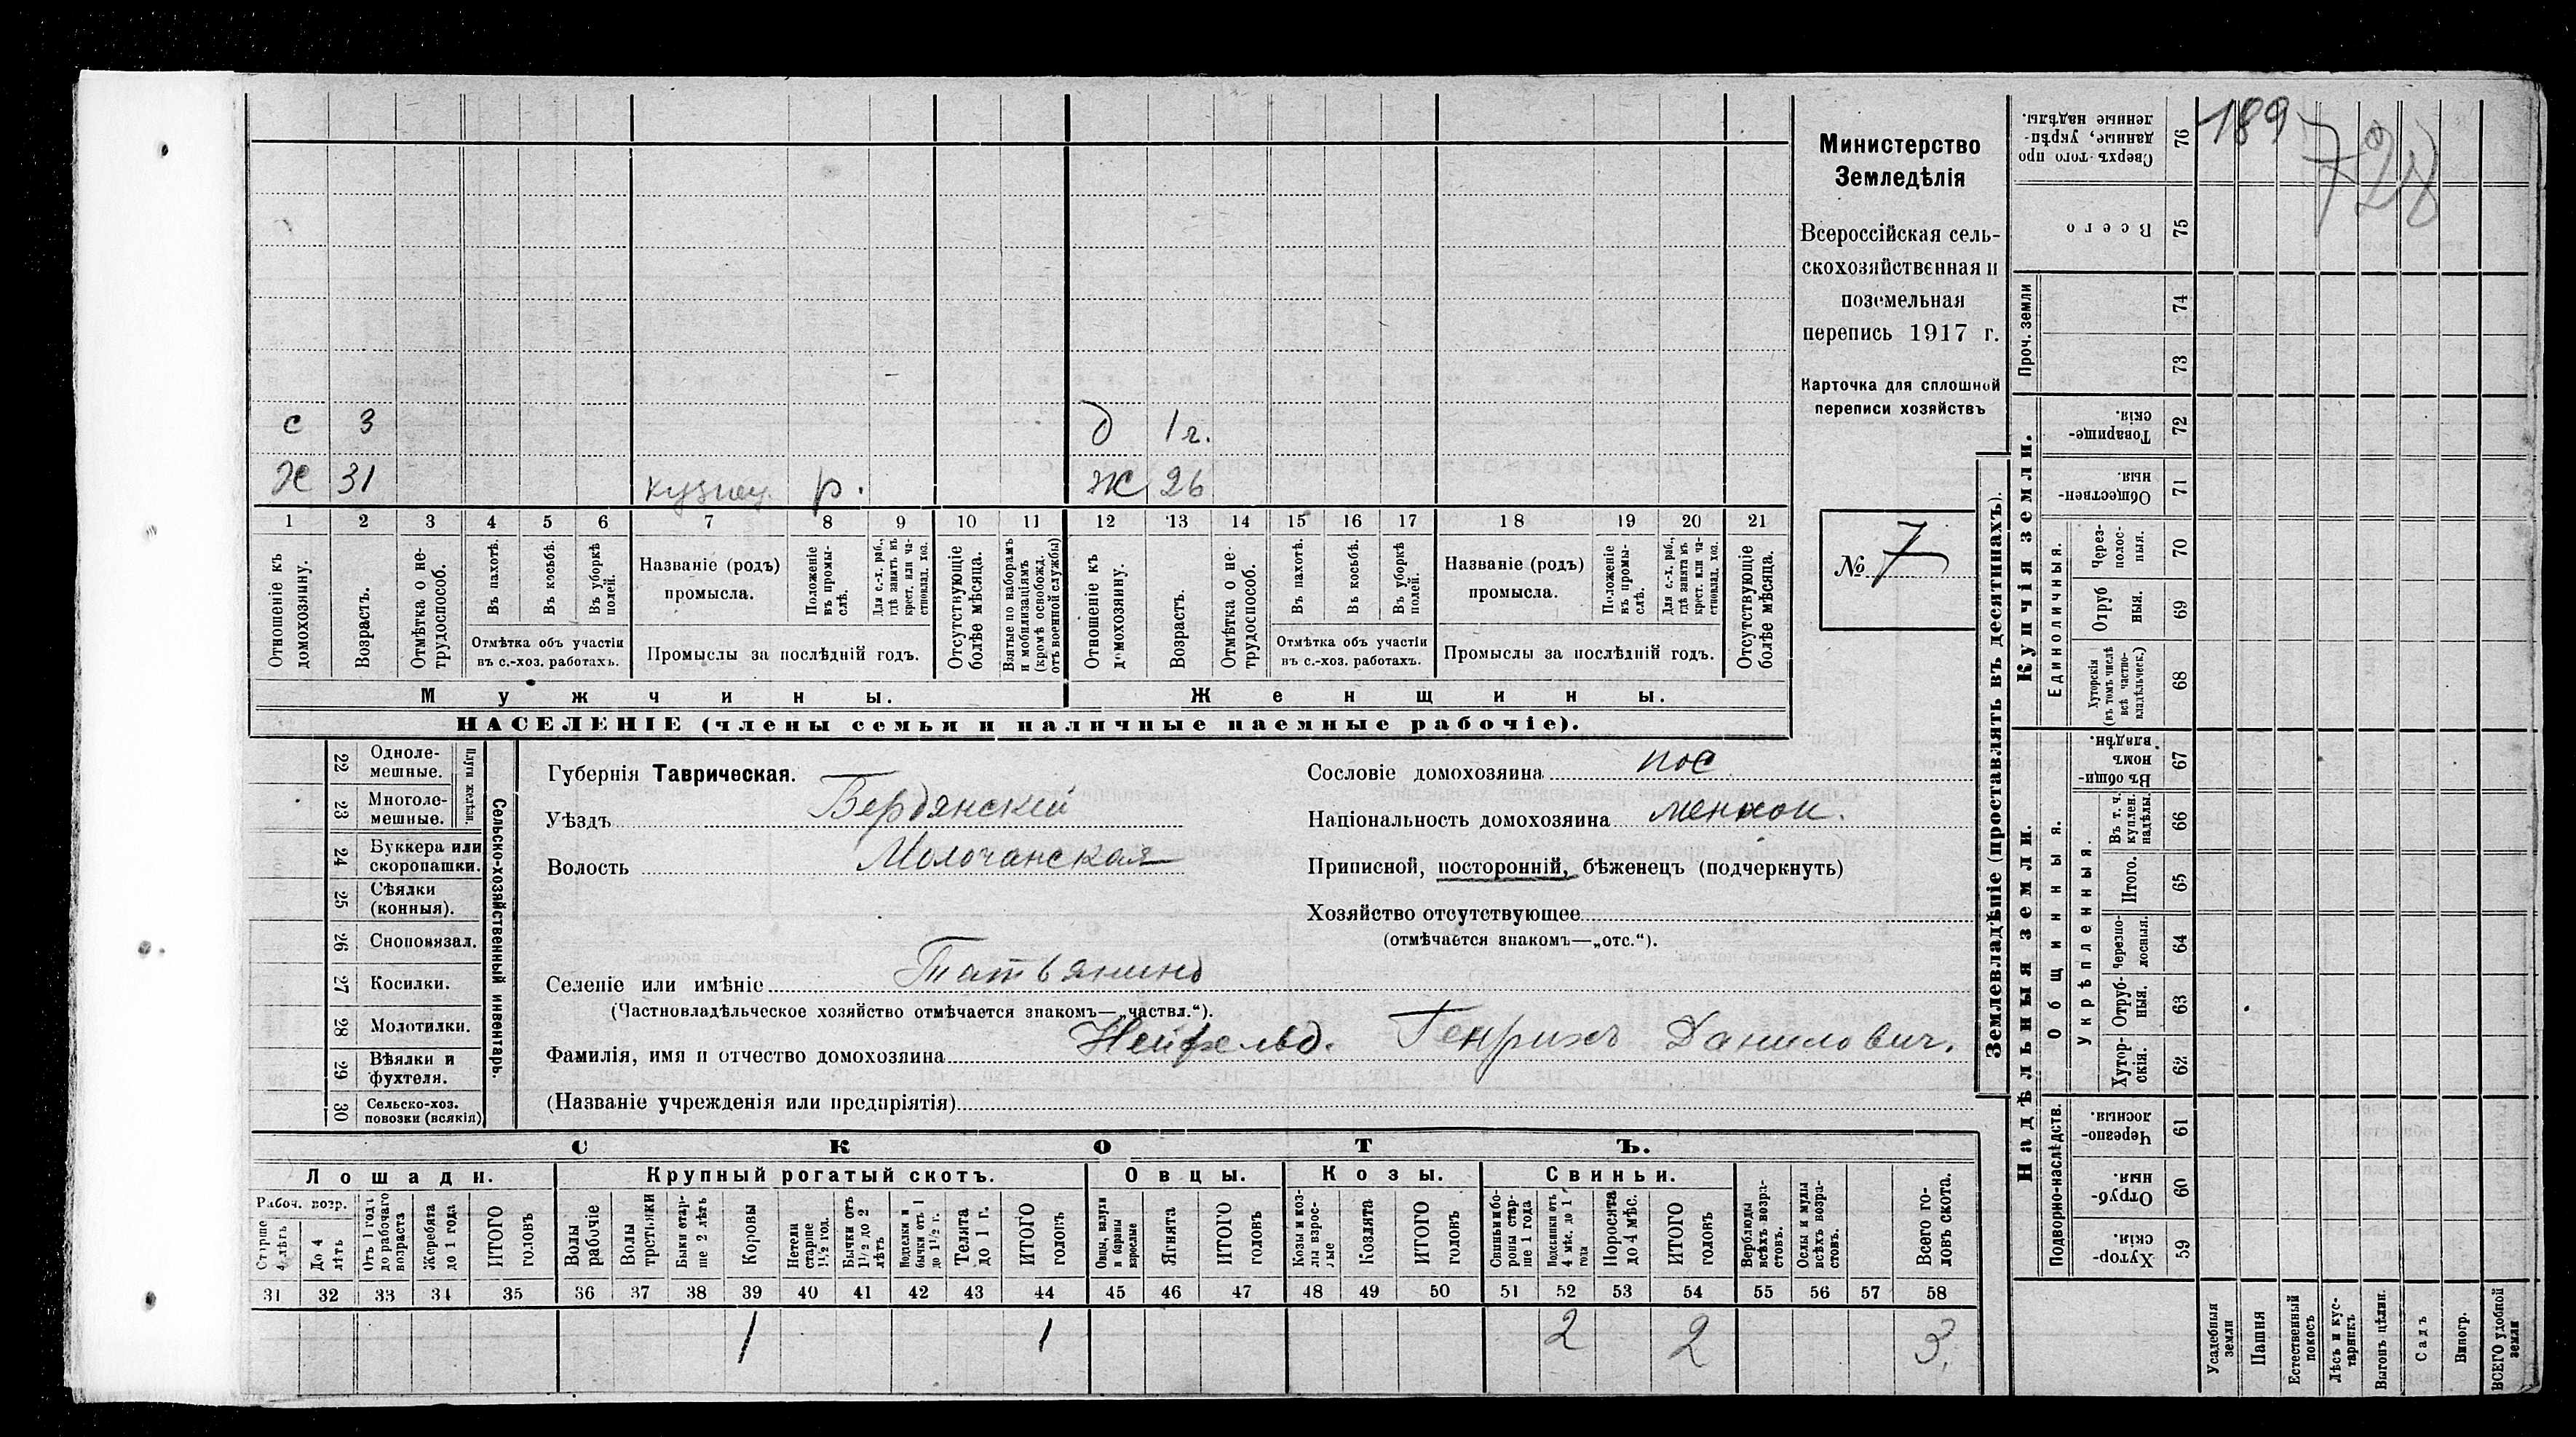 с 3 д 1 г.
Х 31 кузнец. р. Ж 26
1 2 3 4 5 6 7 8 9 10 11 12 13 14 15 16 17 18 19 20 21
Отношеніе къ домохозяину.
Возрастъ.
Отмѣтка о не-
трудоспособ.
Въ пахотѣ.
Въ косьбѣ.
Въ уборкѣ
полей.
Отмѣтка объ участіи
въ с.-хоз. работахъ.
Названіе (родъ)
промысла.
Положеніе
въ промы-
слѣ.
Для с.-х. раб.,
гдѣ занятъ въ
крест. или ча-
стновлад. хоз.
Промыслы за послѣдній годъ.
Отсутствующіе
болѣе мѣсяца.
Взятые по наборамъ
и мобилизаціямъ
(кромѣ освобожд.
отъ военной службы)
Отношеніе къ
домохозяину.
Возрастъ.
Отмѣтка о не-
трудоспособ.
Въ пахотѣ.
Въ косьбѣ.
Въ уборкѣ
полей.
Отмѣтка объ участіи
въ с.-хоз. работахъ.
Названіе (родъ)
промысла.
Положеніе
въ промы-
слѣ.
Для с.-х. раб.,
гдѣ занята въ
крест. или ча-
стновлад. хоз.
Промыслы за послѣдній годъ.
Отсутствующіе
болѣе мѣсяца.
Мужчины.
Женщины.
НАСЕЛЕНІЕ (члены семьи и наличные наемные рабочіе).
Министерство
Земледѣлія
Всероссійская сель-
скохозяйственная и
поземельная
перепись 1917 г.
Карточка для сплошной
переписи хозяйствъ
№ 7
22 Одноле-
мешные.
23 Многоле-
мешные.
Плуги желѣзн.
24 Буккера или
скоропашки.
25 Сѣялки
(конныя).
26 Сноповязал.
27 Косилки.
28 Молотилки.
29 Вѣялки и
фухтеля.
30 Сельско-хоз.
повозки (всякія)
Сельско-хозяйственный инвентарь.
Губернія Таврическая.
Уѣздъ Бердянскій
Волость Молочанская
Селеніе или имѣніе Татьянино
(Частновладѣльческое хозяйство отмѣчается знакомъ—„частвл.“).
Фамилія, имя и отчество домохозяина Нейфельд. Генрихъ Данилович.
(Названіе учрежденія или предпріятія)
Сословіе домохозяина пос
Національность домохозяина меннон.
Приписной, посторонній, бѣженецъ (подчеркнуть)
Хозяйство отсутствующее
(отмѣчается знакомъ—„отс.“).
СКОТЪ.
Лошади. Крупный рогатый скотъ. Овцы. Козы. Свиньи.
Рабоч. возр.
Старше
4 лѣтъ
До 4
лѣтъ
Отъ 1 года
до рабочаго
возраста
Жеребята
до 1 года
ИТОГО
головъ
Волы
рабочіе
Волы
третьяки
Быки стар-
ше 2 лѣтъ
Коровы
Нетели
старше
1½ год.
Бычки отъ
1½ до 2
лѣтъ
Подтелки и
бычки отъ 1
до 1½ г.
Телята
до 1 г.
ИТОГО
головъ
Овцы, валухи
и бараны
взрослые
Ягнята
ИТОГО
головъ
Козы и коз-
лы взрос-
лые
Козлята
ИТОГО
головъ
Свиньи и бо-
ровы стар-
ше 1 года
Подсвинки отъ
4 мѣс. до 1
года
Поросята
до 4 мѣс.
ИТОГО
головъ
Верблюды
всѣхъ возра-
стовъ.
Ослы и мулы
всѣхъ возра-
стовъ.
Всего го-
ловъ скота.
31 32 33 34 35 36 37 38 39 40 41 42 43 44 45 46 47 48 49 50 51 52 53 54 55 56 57 58
1 1 2 2 3.
Землевладѣніе (проставлять въ десятинахъ).
Надѣльныя земли.
Купчія земли.
Проч. земли
Подворно-наслѣдств.
Общинныя.
Укрѣпленныя.
Единоличныя.
Сверхъ того про
данные, укрѣп-
ленные надѣлы.
76
Всего
75
74
73
Товарище-
скія.
72
Обществен-
ныя.
71
Через-
полос-
ныя.
70
Отруб
ныя.
69
Хуторскія
(въ томъ числѣ
всѣ частно-
владѣльческ.)
68
Въ общи-
номъ
владѣн.
67
Въ т. ч.
куплен.
надѣлы.
66
Итого.
65
Черезпо-
лосныя.
64
Отруб-
ныя.
63
Хутор-
скія.
62
Черезпо-
лосныя.
61
Отруб-
ныя.
60
Хутор-
скія.
59
189
728
Усадебныя
земли
Пашня
Естественный
покосъ
Лѣсъ и кус-
тарникъ
Выгонъ цѣлин.
Садъ
Виногр.
ВСЕГО удобной
земли